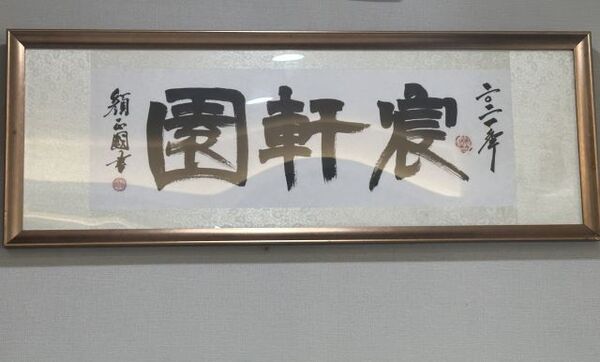 二〇二一年
宸軒園
顏正國書